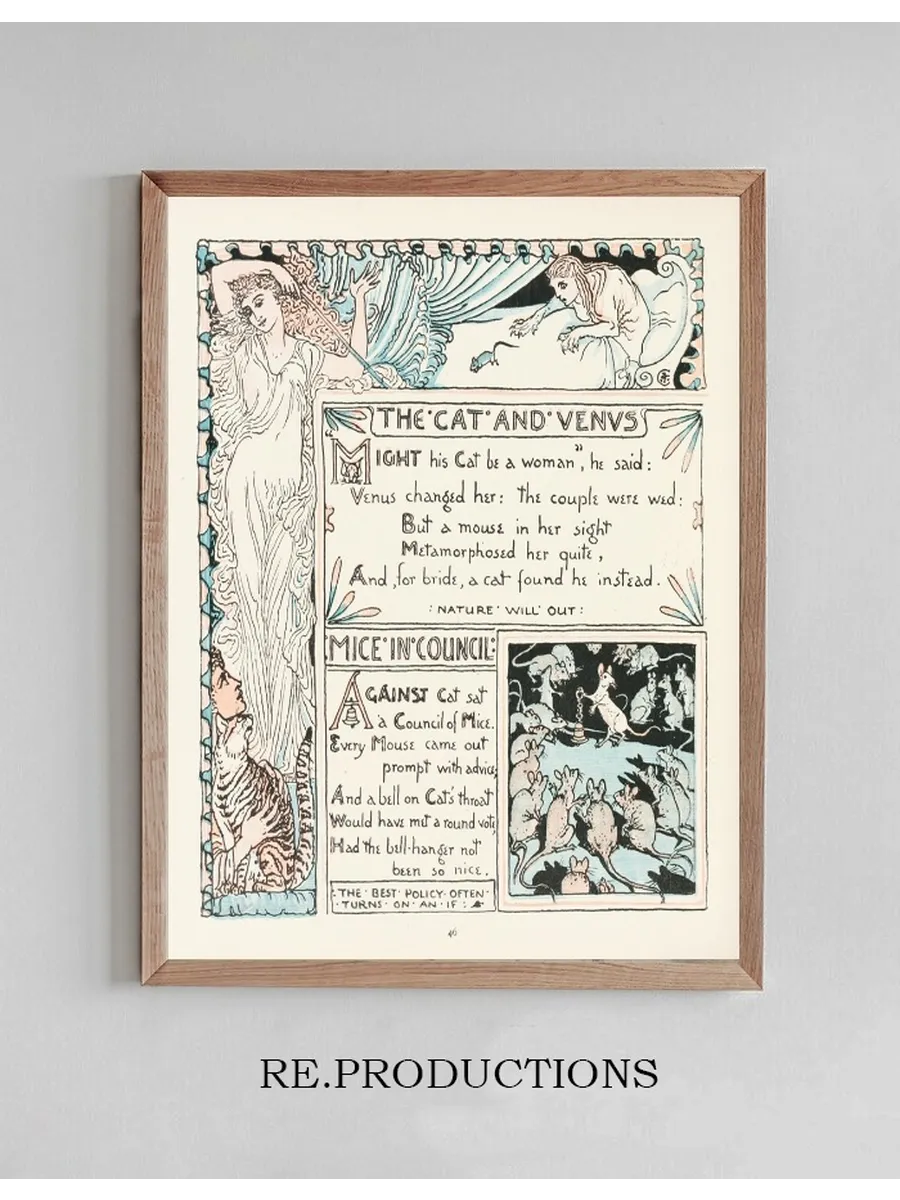 THE·CAT·AND·VENVS
"MIGHT his Cat be a woman", he said:
Venus changed her: the couple were wed:
But a mouse in her sight
Metamorphosed her quite,
And, for bride, a cat found he instead.
:NATURE·WILL·OUT:
MICE·IN·COUNCIL:
AGAINST Cat sat
a Council of Mice.
Every Mouse came out
prompt with advice;
And a bell on Cat's throat
Would have met a round vote,
Had the bell-hanger not
been so nice.
:THE·BEST·POLICY·OFTEN·
·TURNS·ON·AN·IF:
46
RE.PRODUCTIONS